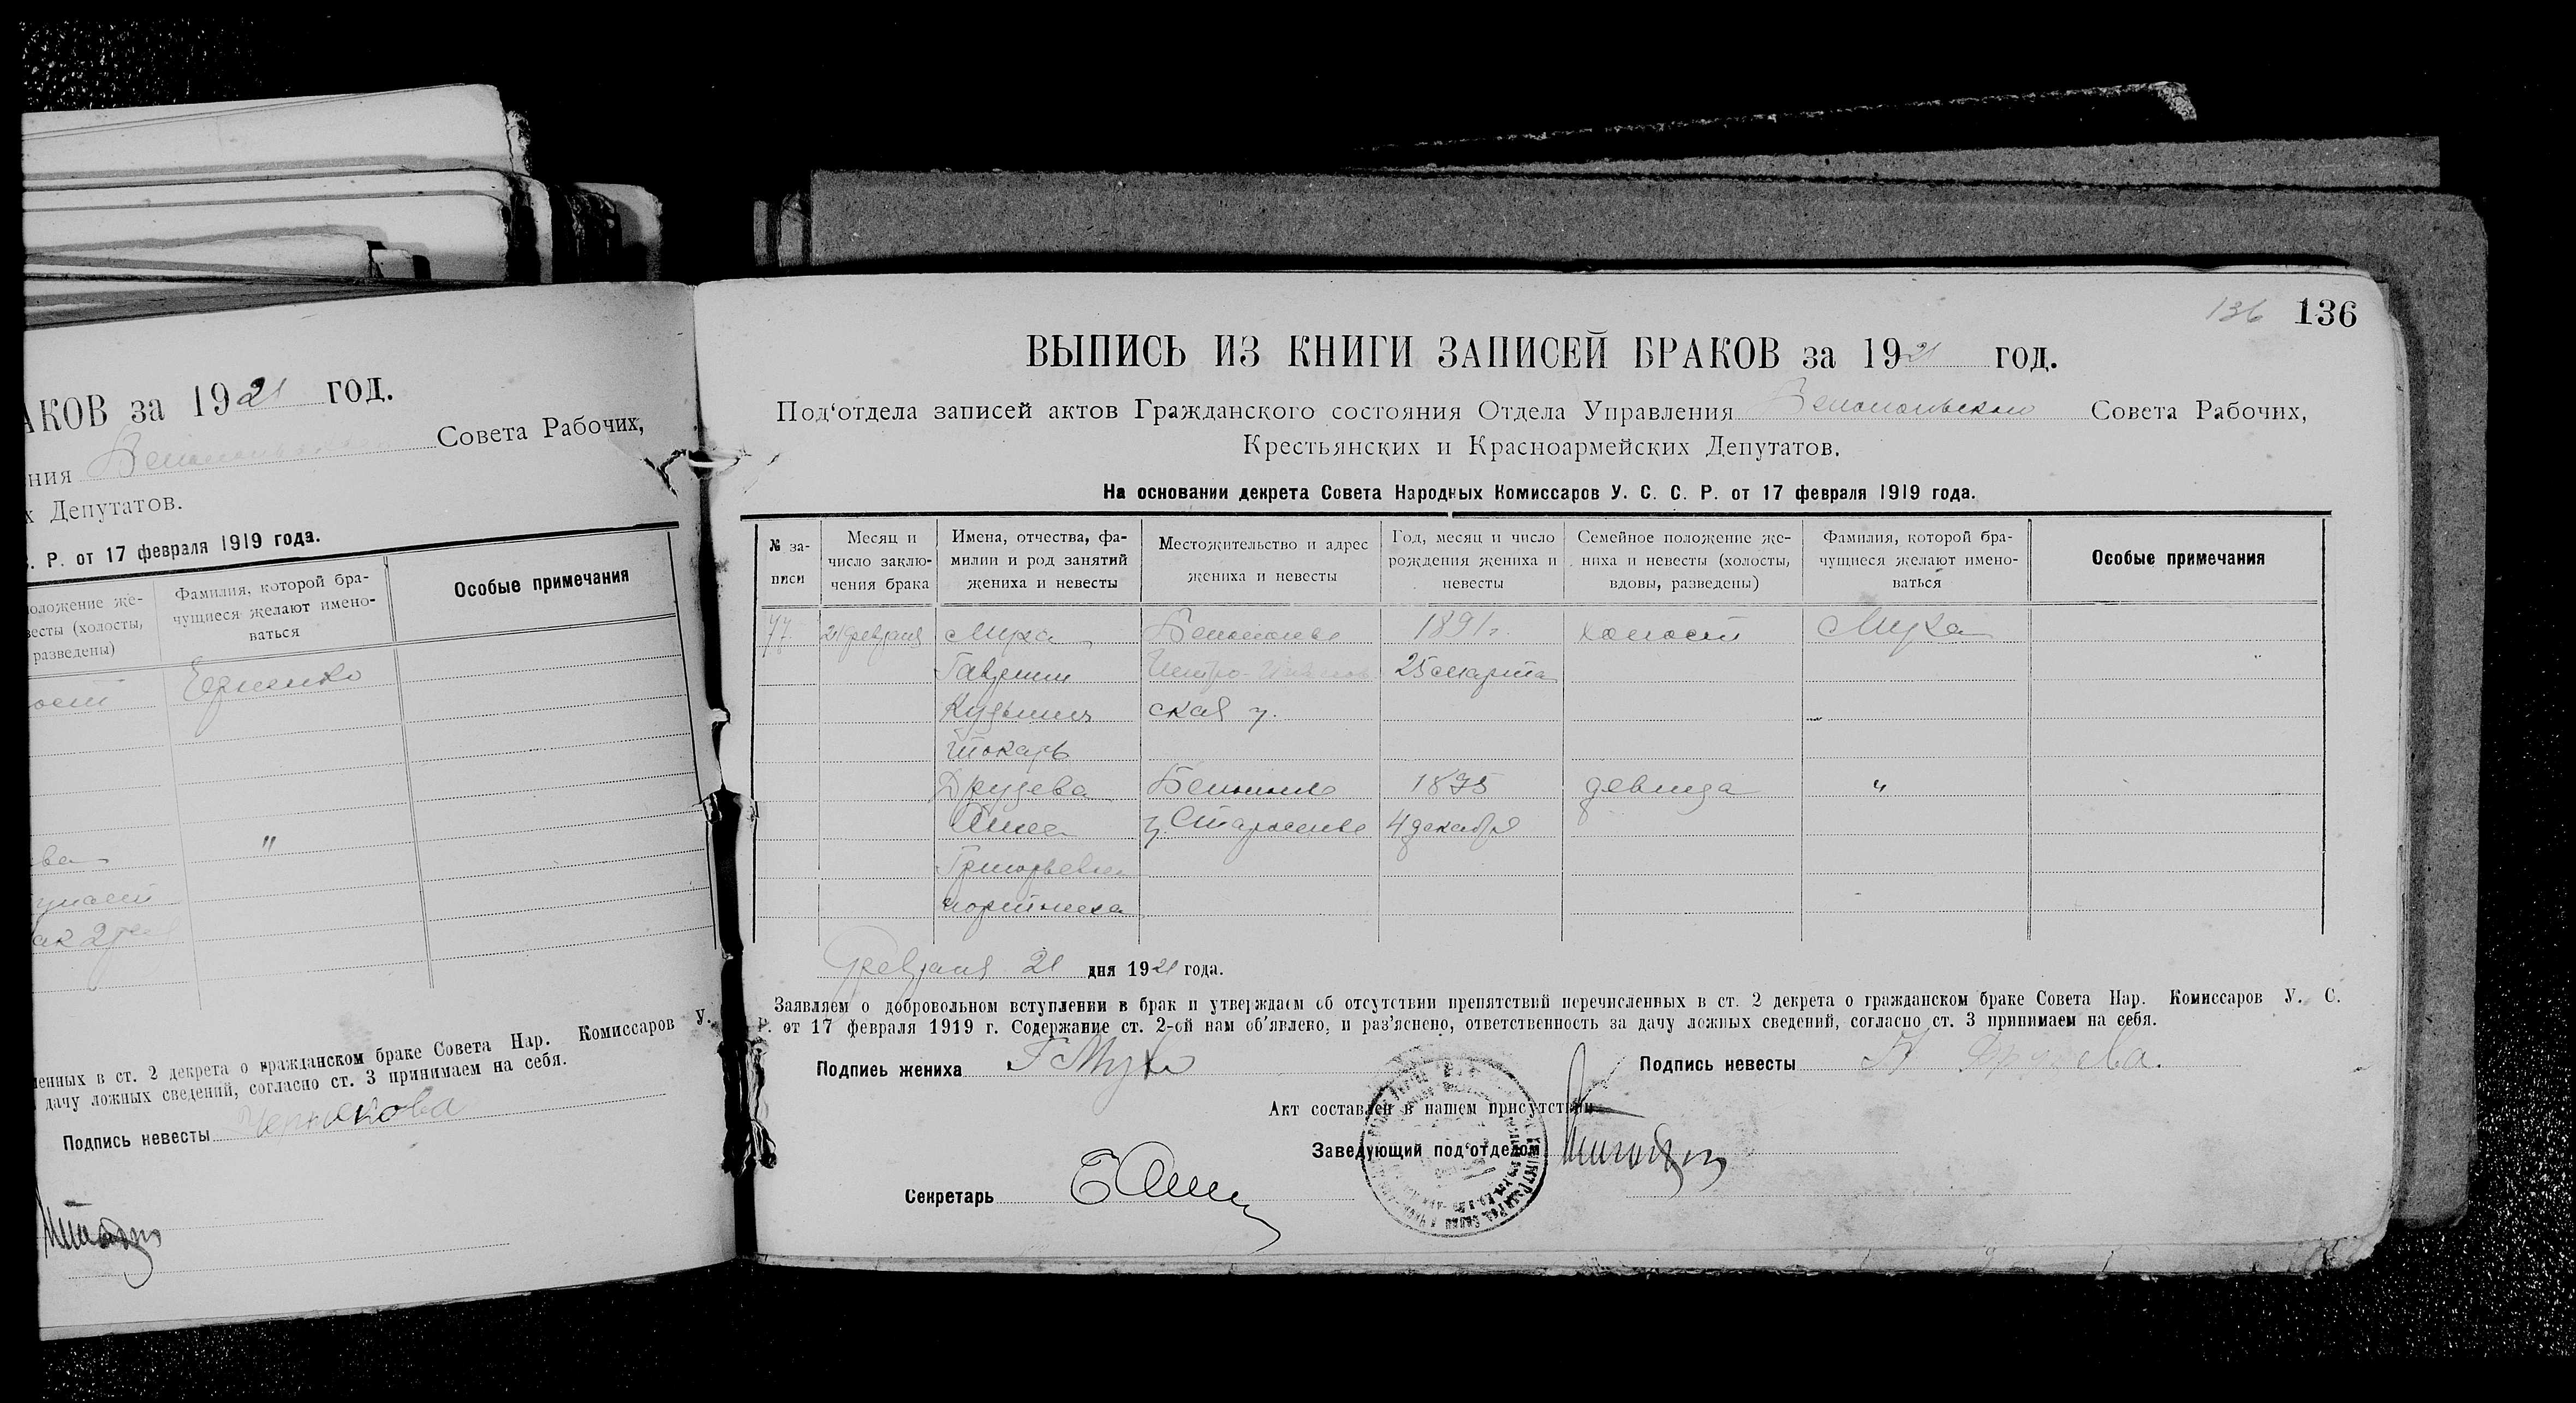 АКОВ за 1921 год.
ния Совета Рабочих,
х Депутатов.
. Р. от 17 февраля 1919 года.
оложение же-
весты (холосты,
разведены)
Фамилия, которой бра-
чущиеся желают имено-
ваться
Особые примечания
"
ленных в ст. 2 декрета о гражданском браке Совета Нар. Комиссаров У.
дачу ложных сведений, согласно ст. 3 принимаем на себя.
Подпись невесты
136 136
ВЫПИСЬ ИЗ КНИГИ ЗАПИСЕЙ БРАКОВ за 1921 год.
Под‘отдела записей актов Гражданского состояния Отдела Управления Совета Рабочих,
Крестьянских и Красноармейских Депутатов.
На основании декрета Совета Народных Комиссаров У. С. С. Р. от 17 февраля 1919 года.
№ за-
писи
Месяц и
число заклю-
чения брака
Имена, отчества, фа-
милии и род занятий
жениха и невесты
Местожительство и адрес
жениха и невесты
Год, месяц и число
рождения жениха и
невесты
Семейное положение же-
ниха и невесты (холосты,
вдовы, разведены)
Фамилия, которой бра-
чущиеся желают имено-
ваться
Особые примечания
77. 21 февраля Муха 1891 г. холост Муха
Гавриил 25 марта
Кузьмич ская у.
токарь
Друзева девица "
Анна 4 декабря
Григорьевна
портниха
Февраля 21 дня 1921 года.
Заявляем о добровольном вступлении в брак и утверждаем об отсутствии препятствий перечисленных в ст. 2 декрета о гражданском браке Совета Нар. Комиссаров У. С.
Р. от 17 февраля 1919 г. Содержание ст. 2-ой нам об'явлено, и раз'яснено, ответственность за дачу ложных сведений, согласно ст. 3 принимаем на себя.
Подпись жениха Г Муха Подпись невесты А Друзева.
Акт составлен в нашем присутствии
Заведующий под‘отделом
Секретарь